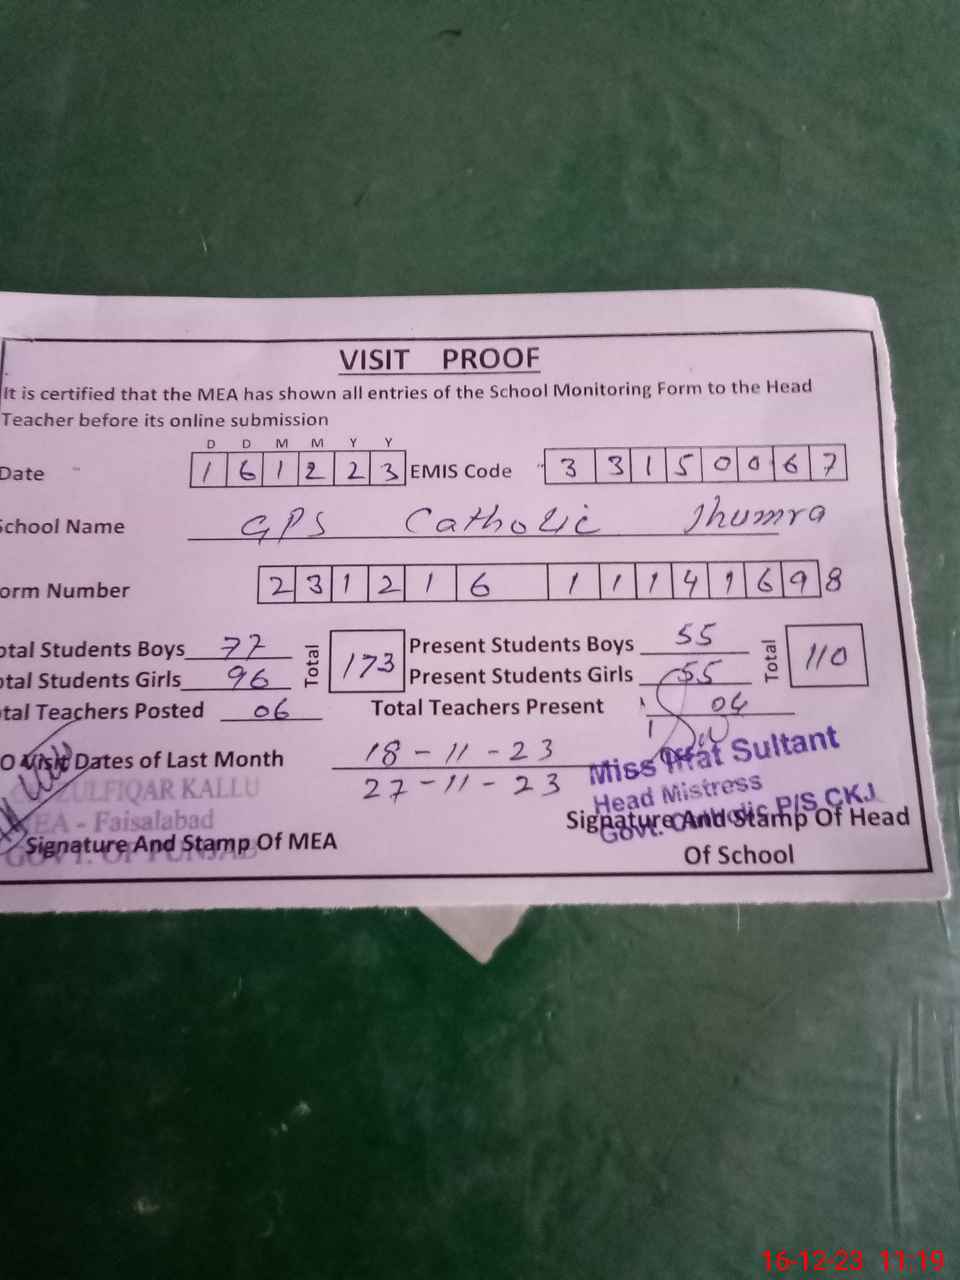 VISIT PROOF
It is certified that the MEA has shown all entries of the School Monitoring Form to the Head
Teacher before its online submission
D D M M Y Y
Date 1 6 1 2 2 3 EMIS Code 3 3 1 5 0 0 6 7
School Name GPS Catholic Jhumra
orm Number 2 3 1 2 1 6 1 1 1 4 1 6 9 8
otal Students Boys 77 Total 173 Present Students Boys 55 Total 110
otal Students Girls 96 Present Students Girls 55
tal Teachers Posted 06 Total Teachers Present 04
O Visit Dates of Last Month 18-11-23
27-11-23
ZULFIQAR KALLU
MEA - Faisalabad
GOVT. OF PUNJAB
Signature And Stamp Of MEA
Miss Iffat Sultant
Head Mistress
Govt. Catholic P/S CKJ
Signature And Stamp Of Head
Of School
16-12-23 11:19